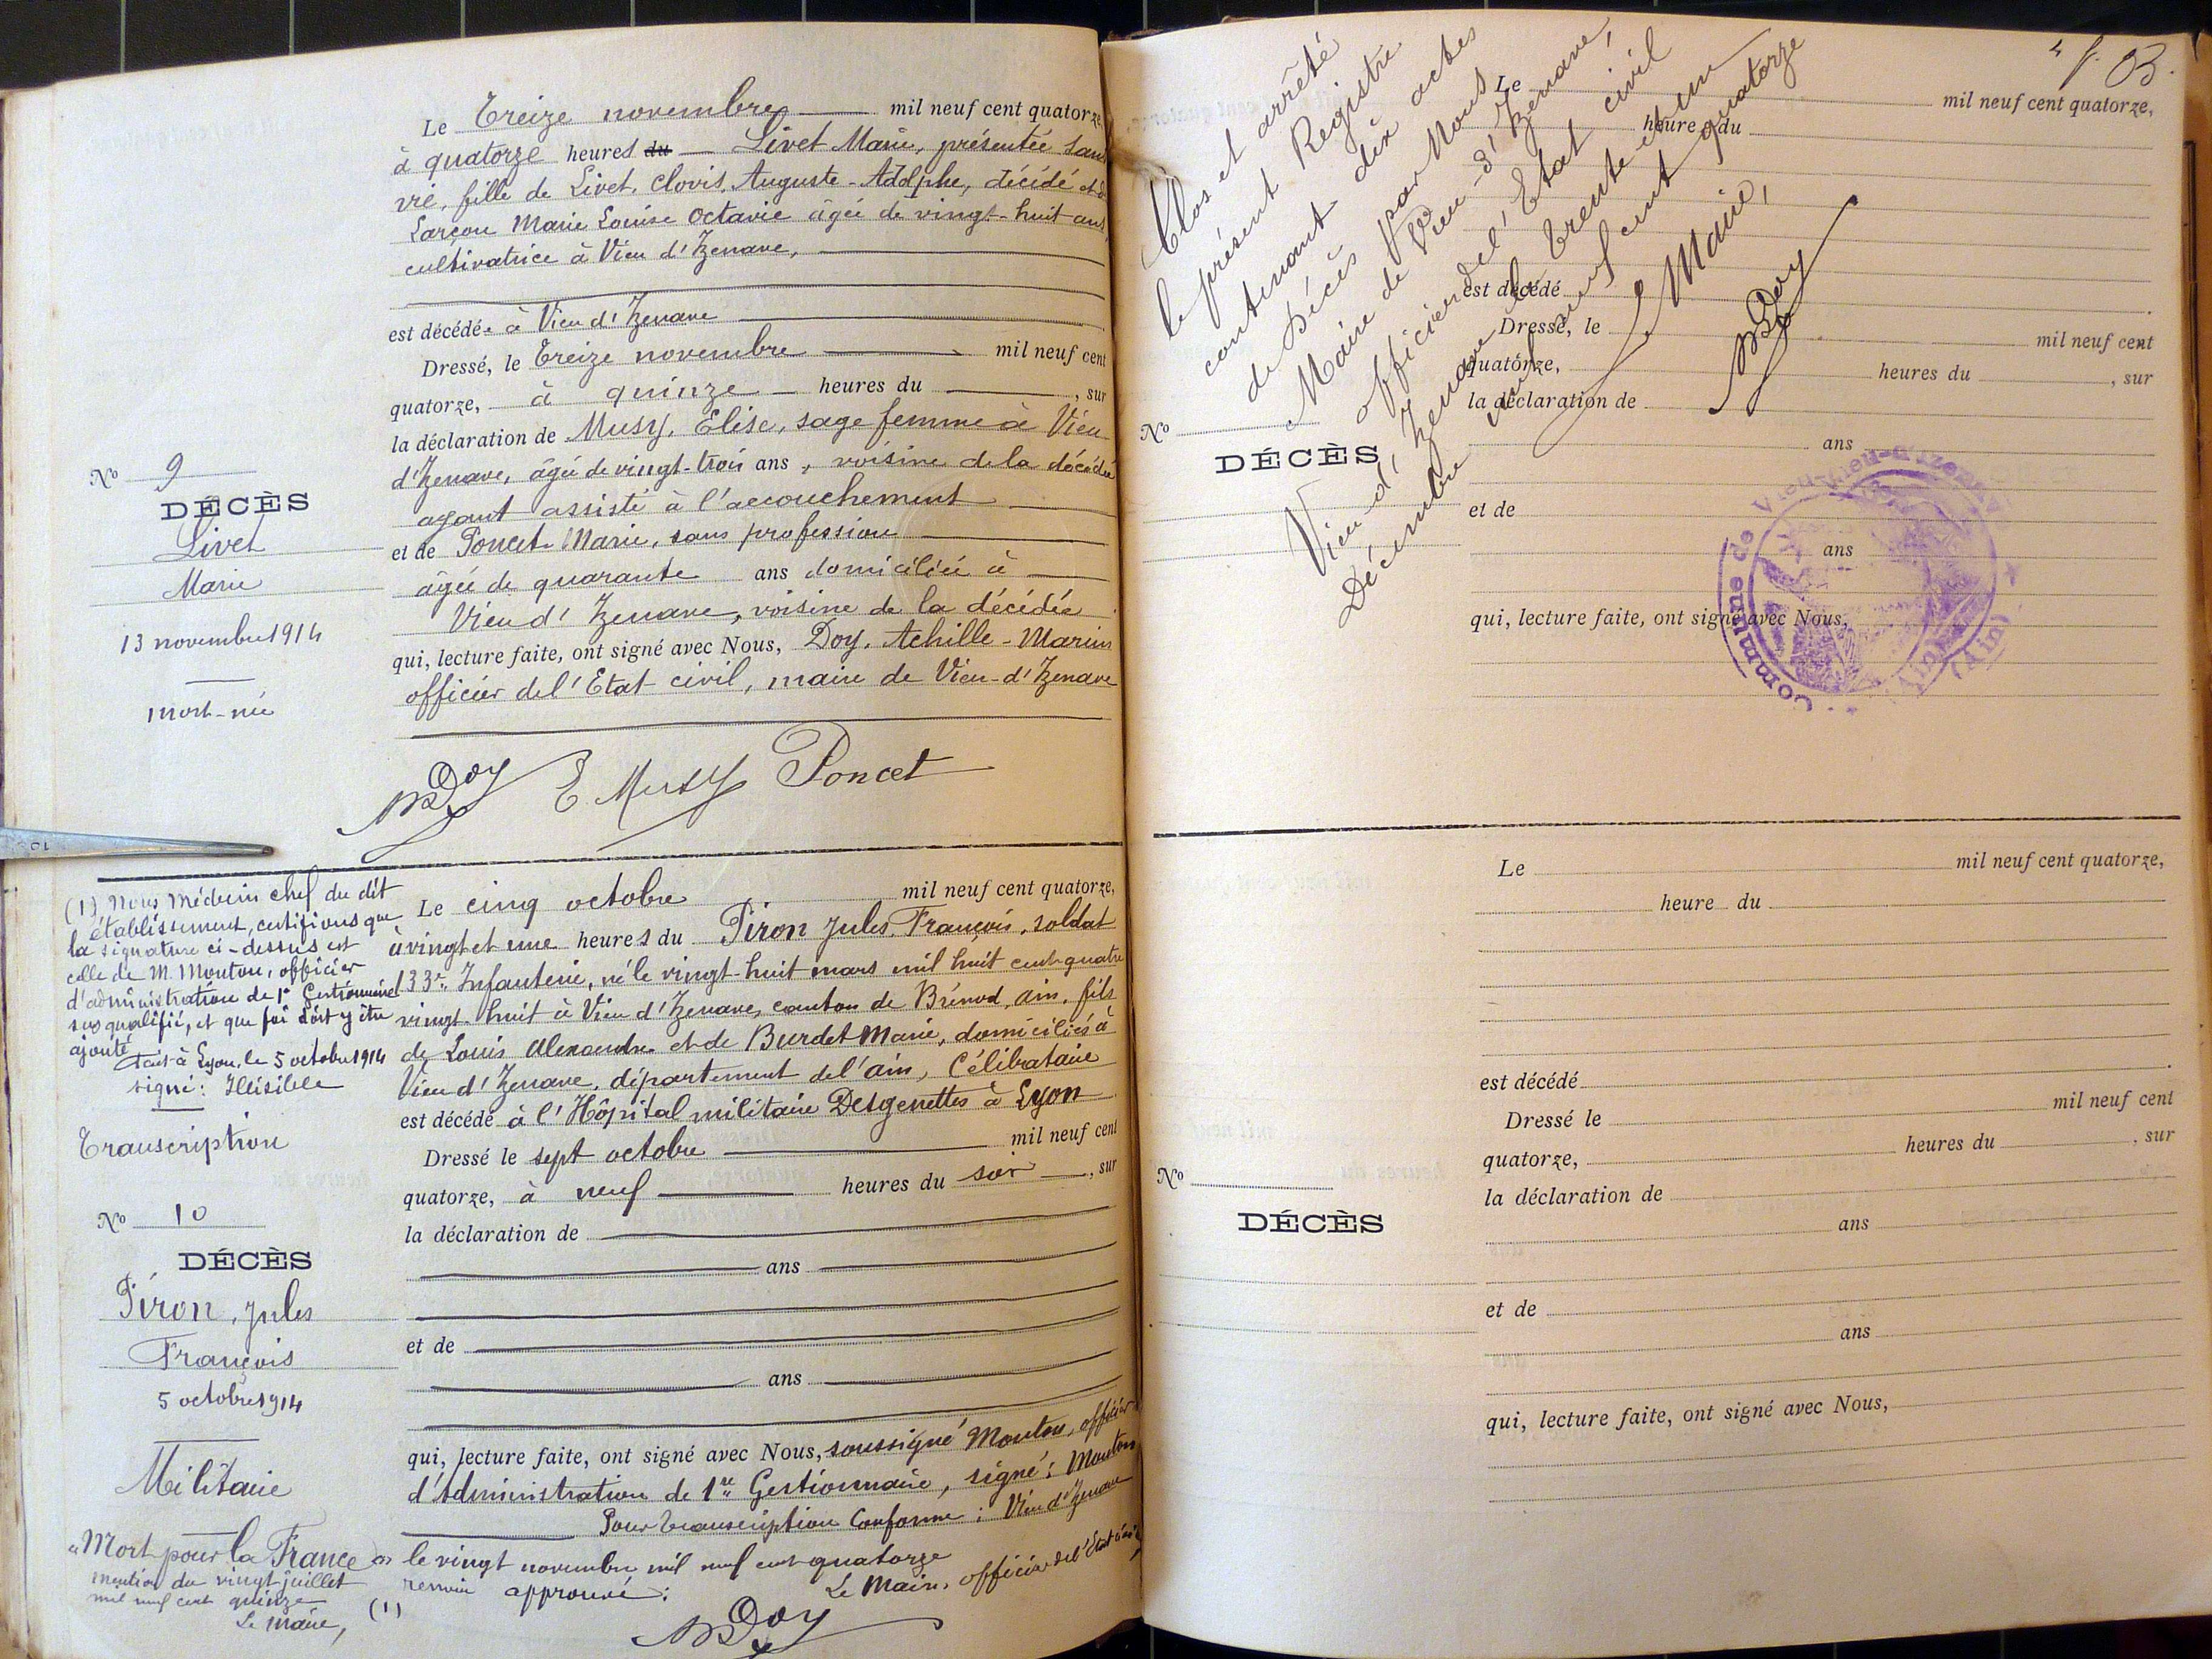 Le Treize novembre mil neuf cent quatorze,
à quatorze heures du Livet Marie, présentée sans
vie, fille de Livet, Clovis, Auguste-Adolphe, décédé et de
Larçon Marie Louise Octavie âgée de vingt-huit ans,
cultivatrice à Vieu d'Izenave,
est décédée à Vieu d'Izenave
Dressé, le Treize novembre mil neuf cent
quatorze, à quinze heures du , sur
la déclaration de Musy, Elise, sage femme à Vieu
d'Izenave, âgée de vingt-trois ans, voisine de la décédée
ayant assisté à l'accouchement
et de Poncet Marie, sans profession
âgée de quarante ans domiciliée à
Vieu d'Izenave, voisine de la décédée
qui, lecture faite, ont signé avec Nous, Doy, Achille-Marius
officier de l'Etat civil, maire de Vieu-d'Izenave
No 9
DÉCÈS
Livet
Marie
13 novembre 1914
mort-née
Doy E Musy Poncet
(1) Nous Médecin chef du dit
établissement, certifions que
la signature ci-dessus est
celle de M. Mouton, officier
d'administration de 1e Gestionnaire
sus qualifié, et que foi doit y être
ajouté
Fait à Lyon, le 5 octobre 1914
signé: Illisible
Transcription
No 10
DÉCÈS
Piron, Jules
François
5 octobre 1914
Militaire
"Mort pour la France"
mention du vingt juillet
mil neuf cent quinze
Le Maire,
Le cinq octobre mil neuf cent quatorze,
à vingt et une heures du Piron Jules, François, soldat
133e Infanterie, né le vingt-huit mars mil huit cent quatre
vingt-huit à Vieu d'Izenave, canton de Brénod, ain, fils
de Louis Alexandre et de Burdet Marie, domiciliés à
Vieu d'Izenave, département de l'ain, Célibataire
est décédé à l'Hôpital militaire Desgenettes à Lyon
Dressé le sept octobre mil neuf cent
quatorze, à neuf heures du soir , sur
la déclaration de
ans
et de
ans
qui, lecture faite, ont signé avec Nous, soussigné Mouton, officier
d'Administration de 1re Gestionnaire, signé: Mouton
Pour transcription Conforme: Vieu d'Izenave
le vingt novembre mil neuf cent quatorze
Le Maire, officier de l'Etat civil
renvoi approuvé:
(1)
Doy
Clos et arrêté
le présent Registre
contenant dix actes
de Décès par Nous
Maire de Vieu-d'Izenave,
officier de l'Etat civil
Vieu-d'Izenave le trente et un
Décembre mil neuf cent quatorze
Le Maire,
Doy
Le mil neuf cent quatorze,
heure du
est décédé
Dressé, le mil neuf cent
quatorze, heures du , sur
la déclaration de
ans
et de
ans
qui, lecture faite, ont signé avec Nous,
No
DÉCÈS
Commune de Vieu-d'Izenave
(Ain)
Le mil neuf cent quatorze,
heure du
est décédé
Dressé le mil neuf cent
quatorze, heures du , sur
la déclaration de
ans
et de
ans
qui, lecture faite, ont signé avec Nous,
No
DÉCÈS